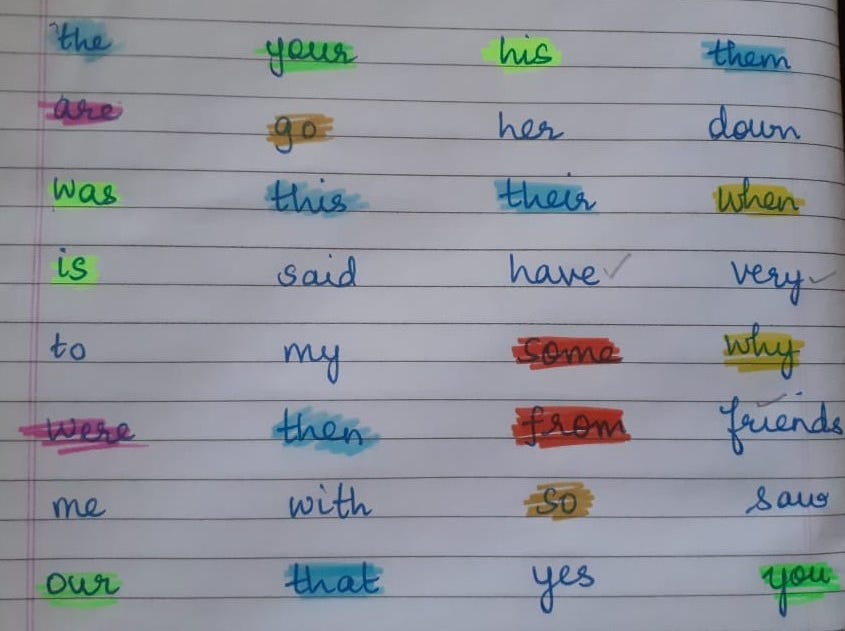 the your his them
are go her down
was this their when
is said have very
to my some why
were then from friends
me with so saw
our that yes you